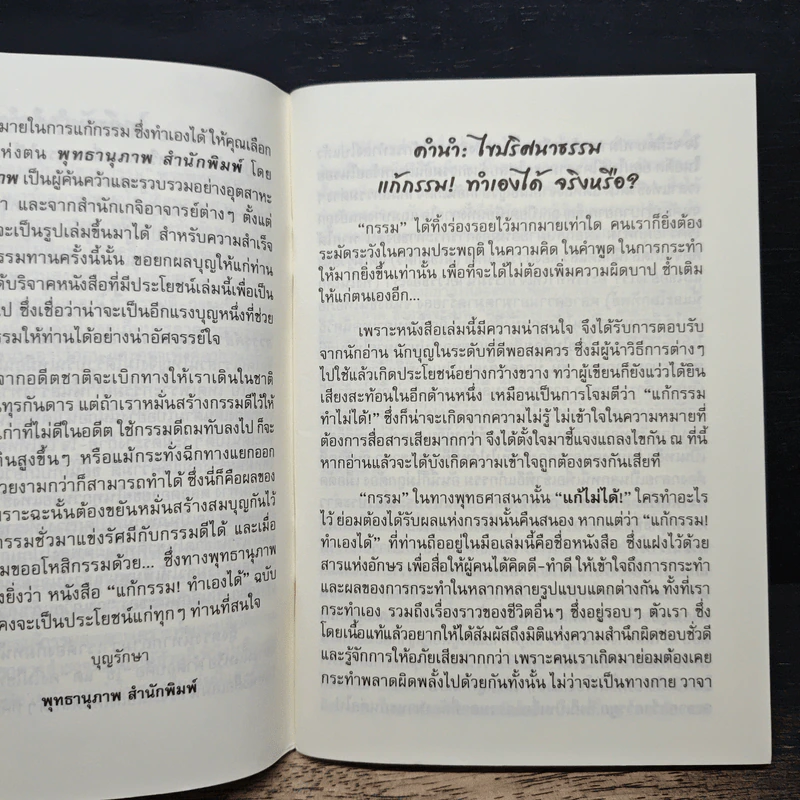 มายในการแก้กรรม ซึ่งทำเองได้ ให้คุณเลือก
ห่งตน พุทธานุภาพ สำนักพิมพ์ โดย
าพ เป็นผู้ค้นคว้าและรวบรวมอย่างอุตสาหะ
า และจากสำนักเกจิอาจารย์ต่างๆ ตั้งแต่
จะเป็นรูปเล่มขึ้นมาได้ สำหรับความสำเร็จ
รรมทานครั้งนี้นั้น ขอยกผลบุญให้แก่ท่าน
ด้บริจาคหนังสือที่มีประโยชน์เล่มนี้เพื่อเป็น
ป ซึ่งเชื่อว่าน่าจะเป็นอีกแรงบุญหนึ่งที่ช่วย
รรมให้ท่านได้อย่างน่าอัศจรรย์ใจ
จากอดีตชาติจะเบิกทางให้เราเดินในชาติ
นทุรกันดาร แต่ถ้าเราหมั่นสร้างกรรมดีไว้ให้
ก่าที่ไม่ดีในอดีต ใช้กรรมดีถมทับลงไป ก็จะ
ดินสูงขึ้นๆ หรือแม้กระทั่งฉีกทางแยกออก
วยงามกว่าก็สามารถทำได้ ซึ่งนี่ก็คือผลของ
พราะฉะนั้นต้องขยันหมั่นสร้างสมบุญกันไว้
กรรมชั่วมาแข่งรัศมีกับกรรมดีได้ และเมื่อ
มขออโหสิกรรมด้วย... ซึ่งทางพุทธานุภาพ
งยิ่งว่า หนังสือ “แก้กรรม! ทำเองได้” ฉบับ
คงจะเป็นประโยชน์แก่ทุกๆ ท่านที่สนใจ
บุญรักษา
พุทธานุภาพ สำนักพิมพ์
คำนำ: ไขปริศนาธรรม
แก้กรรม! ทำเองได้ จริงหรือ?
“กรรม” ได้ทิ้งร่องรอยไว้มากมายเท่าใด คนเราก็ยิ่งต้อง
ระมัดระวังในความประพฤติ ในความคิด ในคำพูด ในการกระทำ
ให้มากยิ่งขึ้นเท่านั้น เพื่อที่จะได้ไม่ต้องเพิ่มความผิดบาป ซ้ำเติม
ให้แก่ตนเองอีก...
เพราะหนังสือเล่มนี้มีความน่าสนใจ จึงได้รับการตอบรับ
จากนักอ่าน นักบุญในระดับที่ดีพอสมควร ซึ่งมีผู้นำวิธีการต่างๆ
ไปใช้แล้วเกิดประโยชน์อย่างกว้างขวาง ทว่าผู้เขียนก็ยังแว่วได้ยิน
เสียงสะท้อนในอีกด้านหนึ่ง เหมือนเป็นการโจมตีว่า “แก้กรรม
ทำไม่ได้!” ซึ่งก็น่าจะเกิดจากความไม่รู้ ไม่เข้าใจในความหมายที่
ต้องการสื่อสารเสียมากกว่า จึงได้ตั้งใจมาชี้แจงแถลงไขกัน ณ ที่นี้
หากอ่านแล้วจะได้บังเกิดความเข้าใจถูกต้องตรงกันเสียที
“กรรม” ในทางพุทธศาสนานั้น “แก้ไม่ได้!” ใครทำอะไร
ไว้ ย่อมต้องได้รับผลแห่งกรรมนั้นคืนสนอง หากแต่ว่า “แก้กรรม!
ทำเองได้” ที่ท่านถืออยู่ในมือเล่มนี้คือชื่อหนังสือ ซึ่งแฝงไว้ด้วย
สารแห่งอักษร เพื่อสื่อให้ผู้คนได้คิดดี-ทำดี ให้เข้าใจถึงการกระทำ
และผลของการกระทำในหลากหลายรูปแบบแตกต่างกัน ทั้งที่เรา
กระทำเอง รวมถึงเรื่องราวของชีวิตอื่นๆ ซึ่งอยู่รอบๆ ตัวเรา ซึ่ง
โดยเนื้อแท้แล้วอยากให้ได้สัมผัสถึงมิติแห่งความสำนึกผิดชอบชั่วดี
และรู้จักการให้อภัยเสียมากกว่า เพราะคนเราเกิดมาย่อมต้องเคย
กระทำพลาดผิดพลั้งไปด้วยกันทั้งนั้น ไม่ว่าจะเป็นทางกาย วาจา